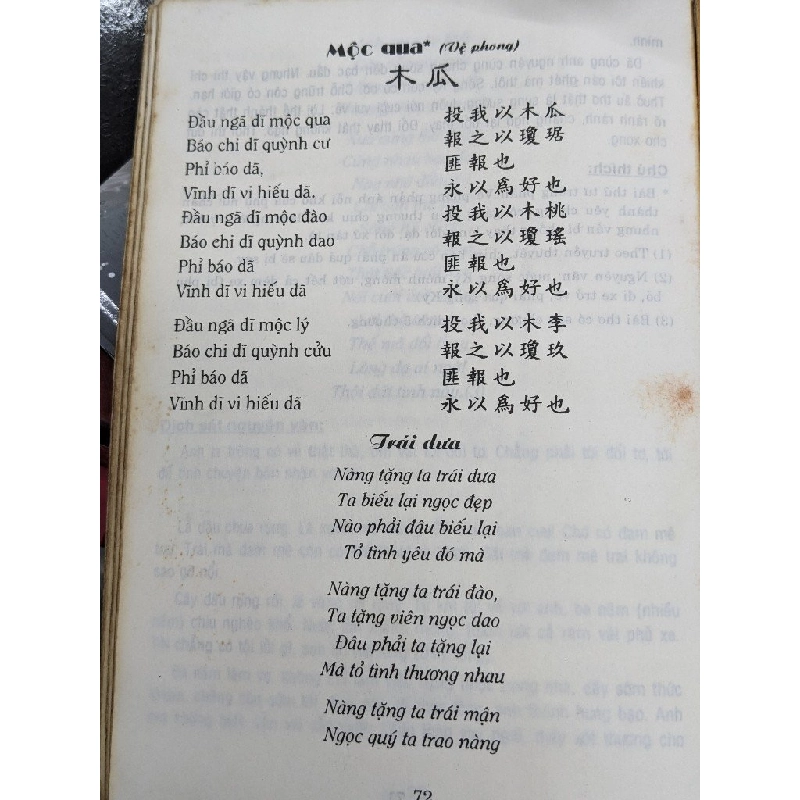 Mộc qua* (Vệ phong)
木瓜
Đầu ngã dĩ mộc qua 投我以木瓜
Báo chi dĩ quỳnh cư 報之以瓊琚
Phỉ báo dã, 匪報也
Vĩnh dĩ vi hiếu dã. 永以爲好也
Đầu ngã dĩ mộc đào 投我以木桃
Báo chi dĩ quỳnh dao 報之以瓊瑤
Phỉ báo dã 匪報也
Vĩnh dĩ vi hiếu dã 永以爲好也
Đầu ngã dĩ mộc lý 投我以木李
Báo chi dĩ quỳnh cửu 報之以瓊玖
Phỉ báo dã 匪報也
Vĩnh dĩ vi hiếu dã 永以爲好也
Trái dưa
Nàng tặng ta trái dưa
Ta biếu lại ngọc đẹp
Nào phải đâu biếu lại
Tỏ tình yêu đó mà
Nàng tặng ta trái đào,
Ta tặng viên ngọc dao
Đâu phải ta tặng lại
Mà tỏ tình thương nhau
Nàng tặng ta trái mận
Ngọc quý ta trao nàng
72